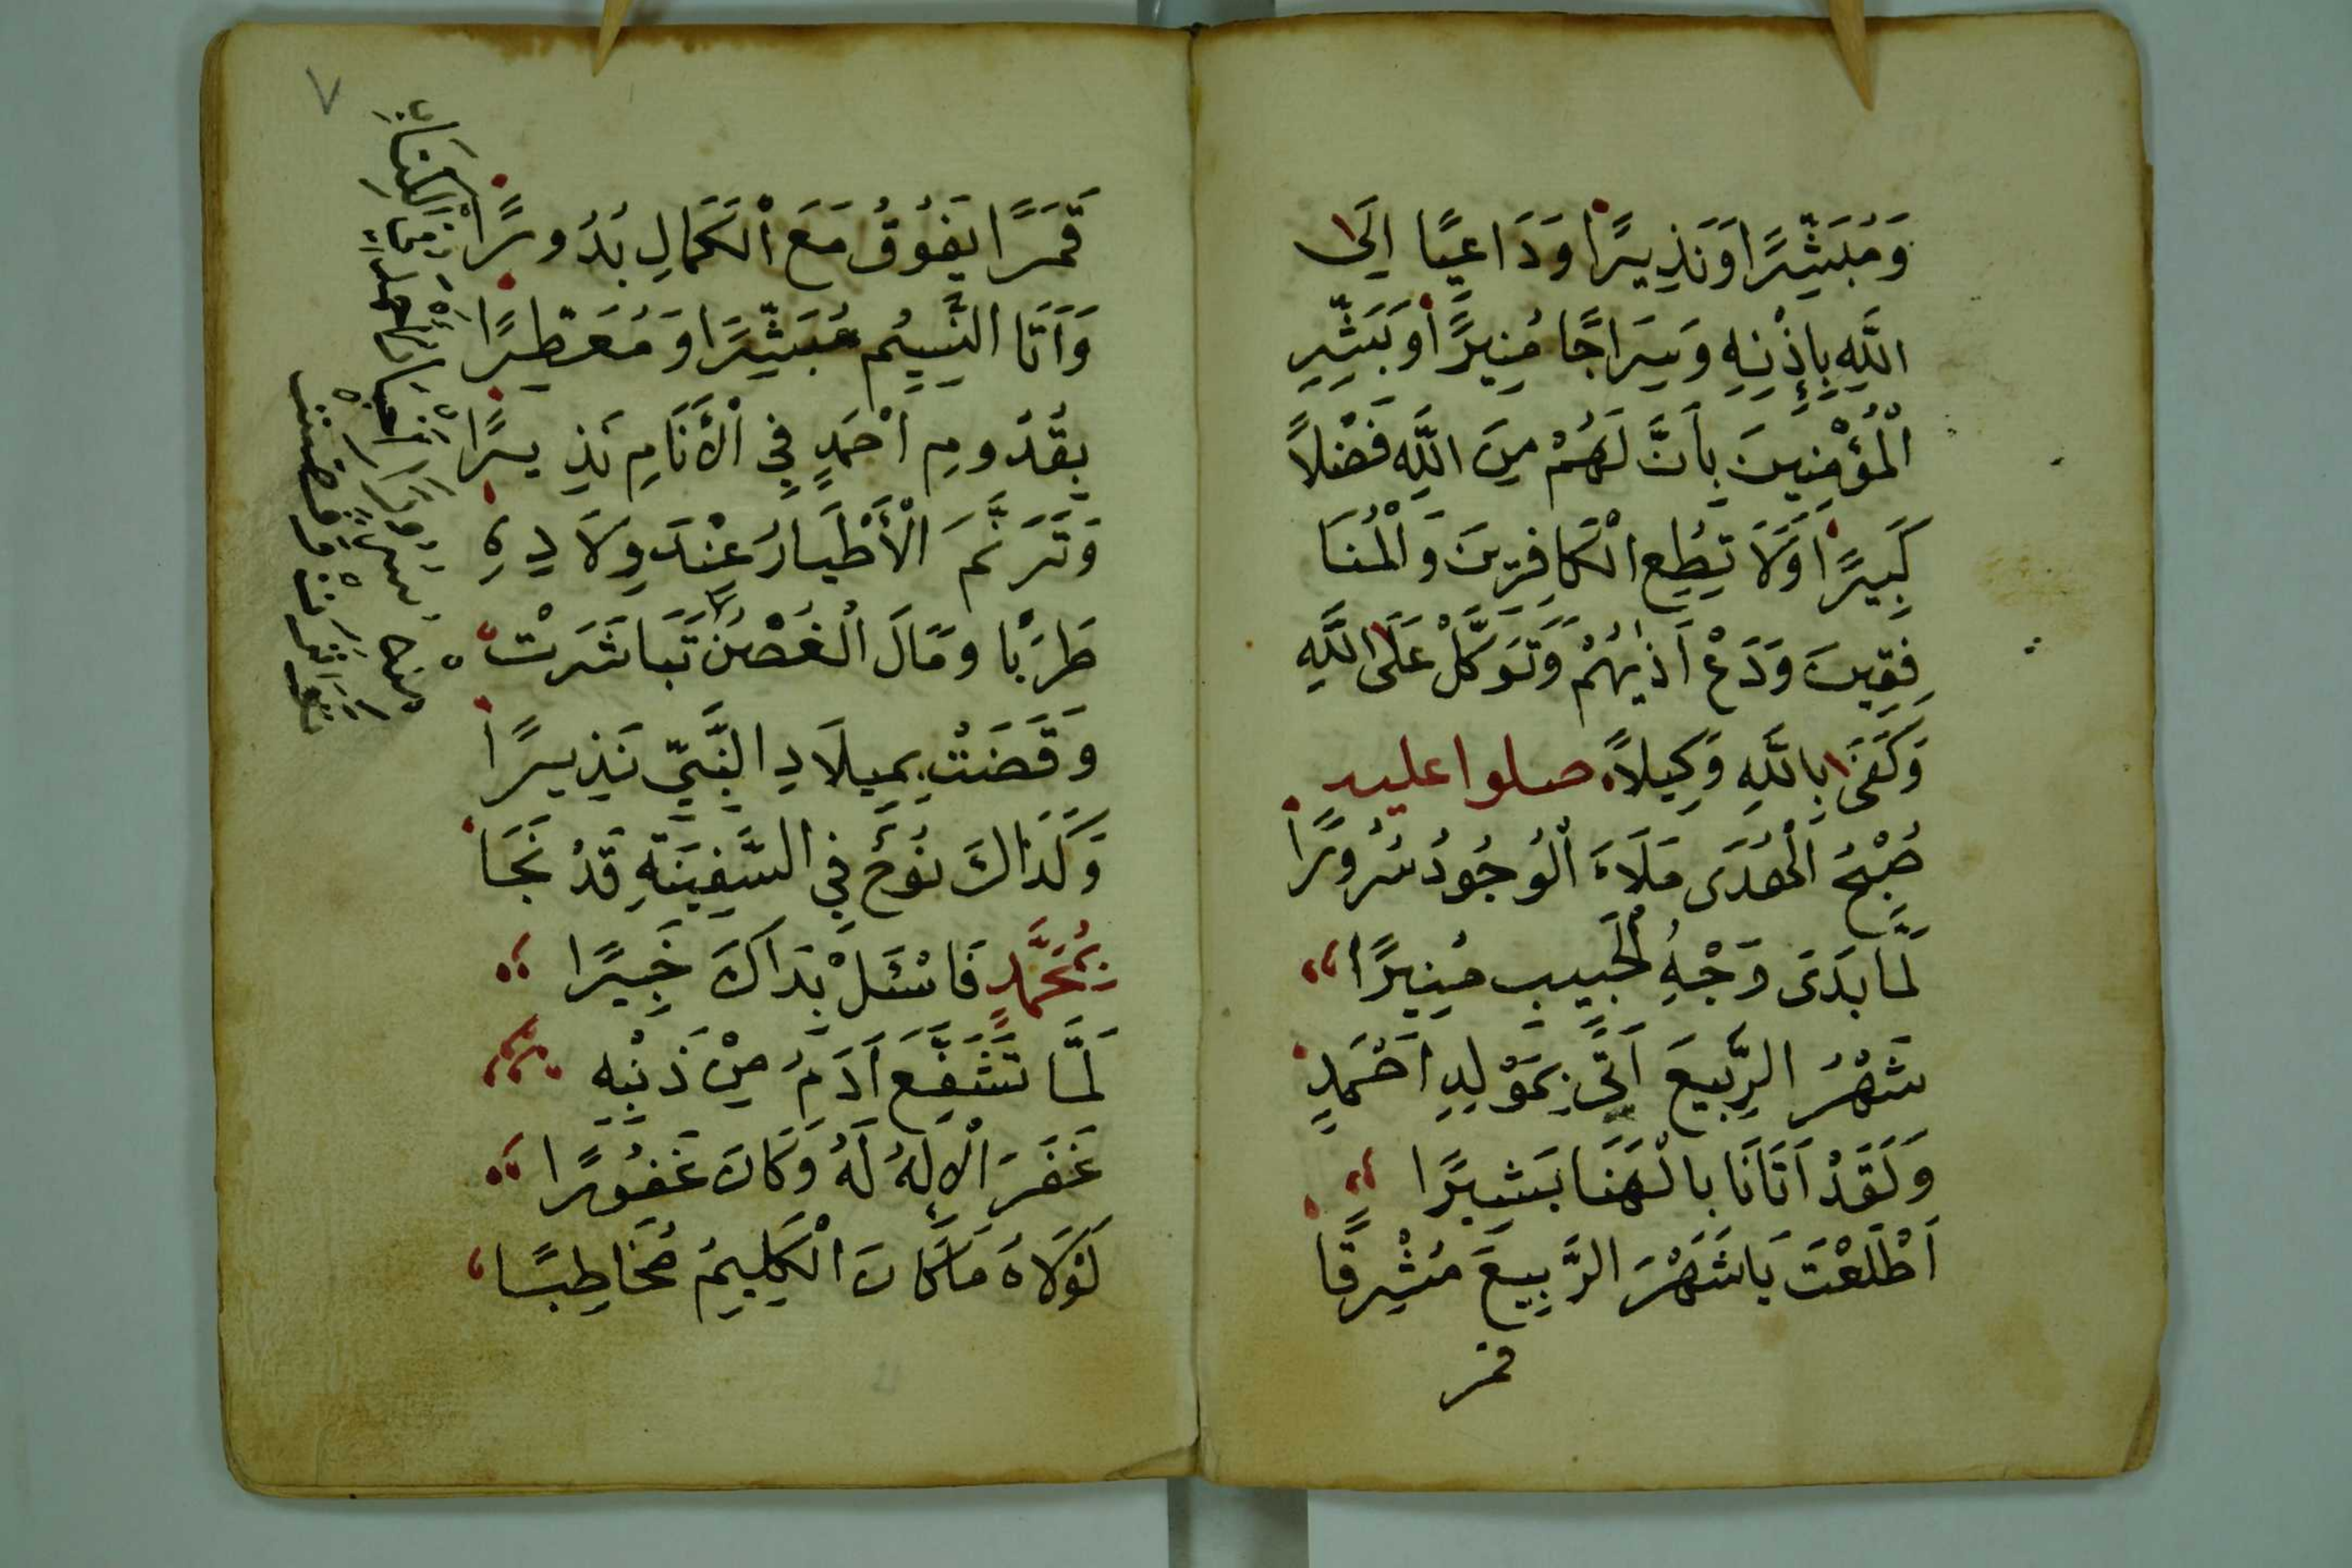 وَمُبَشِّرًا وَنَذِيرًا وَدَاعِيًا اِلَى
اللَّهِ بِإِذْنِهِ وَسِرَاجًا مُنِيرًا وَبَشِّرِ
الْمُؤْمِنِينَ بِاَنَّ لَهُمْ مِنَ اللَّهِ فَضْلاً
كَبِيرًا وَلَا تُطِعِ الْكَافِرِينَ وَالْمُنَا
فِقِينَ وَدَعْ اَذٰيهُمْ وَتَوَكَّلْ عَلَى اللَّهِ
وَكَفَى بِاللَّهِ وَكِيلاً صلوا عليه
صُبْحُ الْهُدَى مَلَاءَ الْوُجُودُ سُرُورًا
لَمَّا بَدَى وَجْهُ الْحَبِيبِ مُنِيرًا
شَهْرُ الرَّبِيعَ اَتَى بِمَوْلِدِ اَحْمَدٍ
وَلَقَدْ اَتَانَا بِالْهَنَا بَشِيرًا
اَطْلَعْتَ يَا شَهْرَ الرَّبِيعَ مُشْرِقًا
قمر
٧
قَمَرًا يَفُوقُ مَعَ الْكَمَالِ بُدُورًا
وَاَتَا النَّسِيمُ مُبَشِّرًا وَمُعَطِّرًا
بِقُدُومِ اَحْمَدٍ فِي الْأَنَامِ نَذِيرًا
وَتَرَنَّمَ الْأَطْيَارُ عِنْدَ وِلَادِهِ
طَرَبًا وَمَالَ الْغُصْنُ تَبَاشَرَتْ
وَقَضَتْ بِمِيلَادِ النَّبِيِّ نَذِيرًا
وَكَذَاكَ نُوحُ فِي السَّفِينَةِ قَدْ نَجَا
بِمُحَمَّدٍ فَاسْئَلْ بِذَاكَ خَبِيرًا
لَمَّا تَشَفَّعَ اَدَمُ مِنْ ذَنْبِهِ
غَفَرَ الْاِلٰهُ لَهُ وَكَانَ غَفُورًا
لَوْلَاهُ مَا كَانَ الْكَلِيمُ مُخَاطِبًا